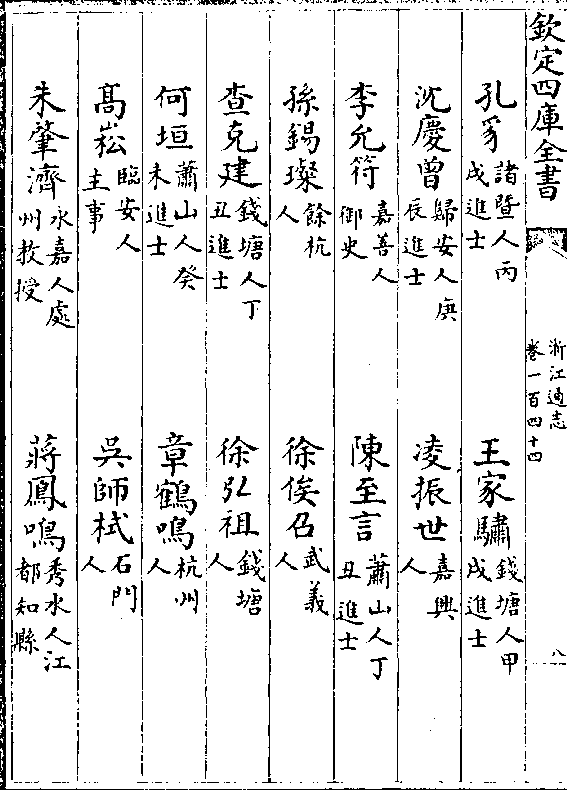 欽定四庫全書
浙江通志
卷一百四十四
八
孔豸諸暨人丙戌進士
王家驌錢塘人甲戌進士
沈慶曾歸安人庚辰進士
凌振世嘉興人
李允符嘉善人御史
陳至言蕭山人丁丑進士
孫錫璨餘杭人
徐俟召武義人
查克建錢塘人丁丑進士
徐弘祖錢塘人
何垣蕭山人癸未進士
章鶴鳴杭州人
髙崧臨安人主事
吳師栻石門人
朱肇濟永嘉人處州教授
蔣鳳鳴秀水人江都知縣